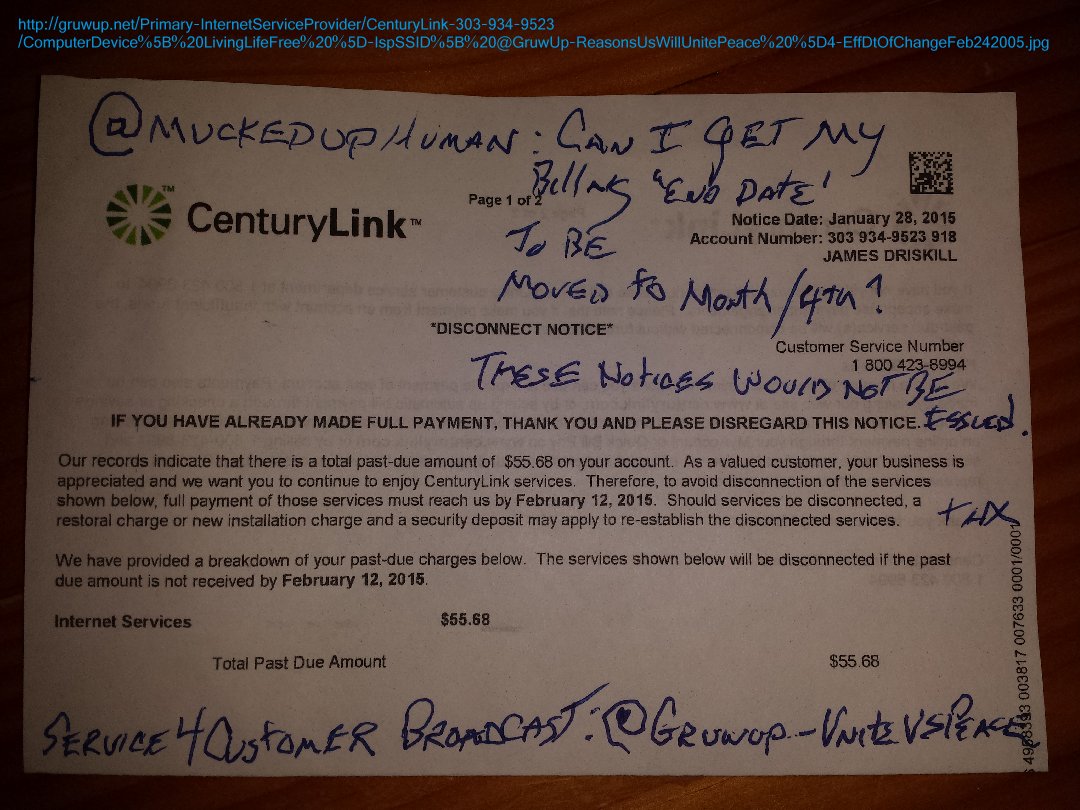 http://gruwup.net/Primary-InternetServiceProvider/CenturyLink-303-934-9523
/ComputerDevice%5B%20LivingLifeFree%20%5D-IspSSID%5B%20@GruwUp-ReasonsUsWillUnitePeace%20%5D4-EffDtOfChangeFeb242005.jpg
@MUCKEDUPHUMAN: CAN I GET MY
Billing "END DATE'
Page 1 of 2
CenturyLink™
Notice Date: January 28, 2015
Account Number: 303 934-9523 918
JAMES DRISKILL
To BE
MOVED to Month/4TH?
*DISCONNECT NOTICE*
Customer Service Number
1 800 423-8994
THESE NOTICES WOULD NOT BE
ISSUED.
IF YOU HAVE ALREADY MADE FULL PAYMENT, THANK YOU AND PLEASE DISREGARD THIS NOTICE.
Our records indicate that there is a total past-due amount of $55.68 on your account. As a valued customer, your business is
appreciated and we want you to continue to enjoy CenturyLink services. Therefore, to avoid disconnection of the services
shown below, full payment of those services must reach us by February 12, 2015. Should services be disconnected, a
restoral charge or new installation charge and a security deposit may apply to re-establish the disconnected services.
We have provided a breakdown of your past-due charges below. The services shown below will be disconnected if the past
due amount is not received by February 12, 2015.
Internet Services $55.68
Total Past Due Amount $55.68
SERVICE4CUSTOMER BROADCAST:@GRUWUP-UNITEUSPEACE
003817 007633 0001/0001